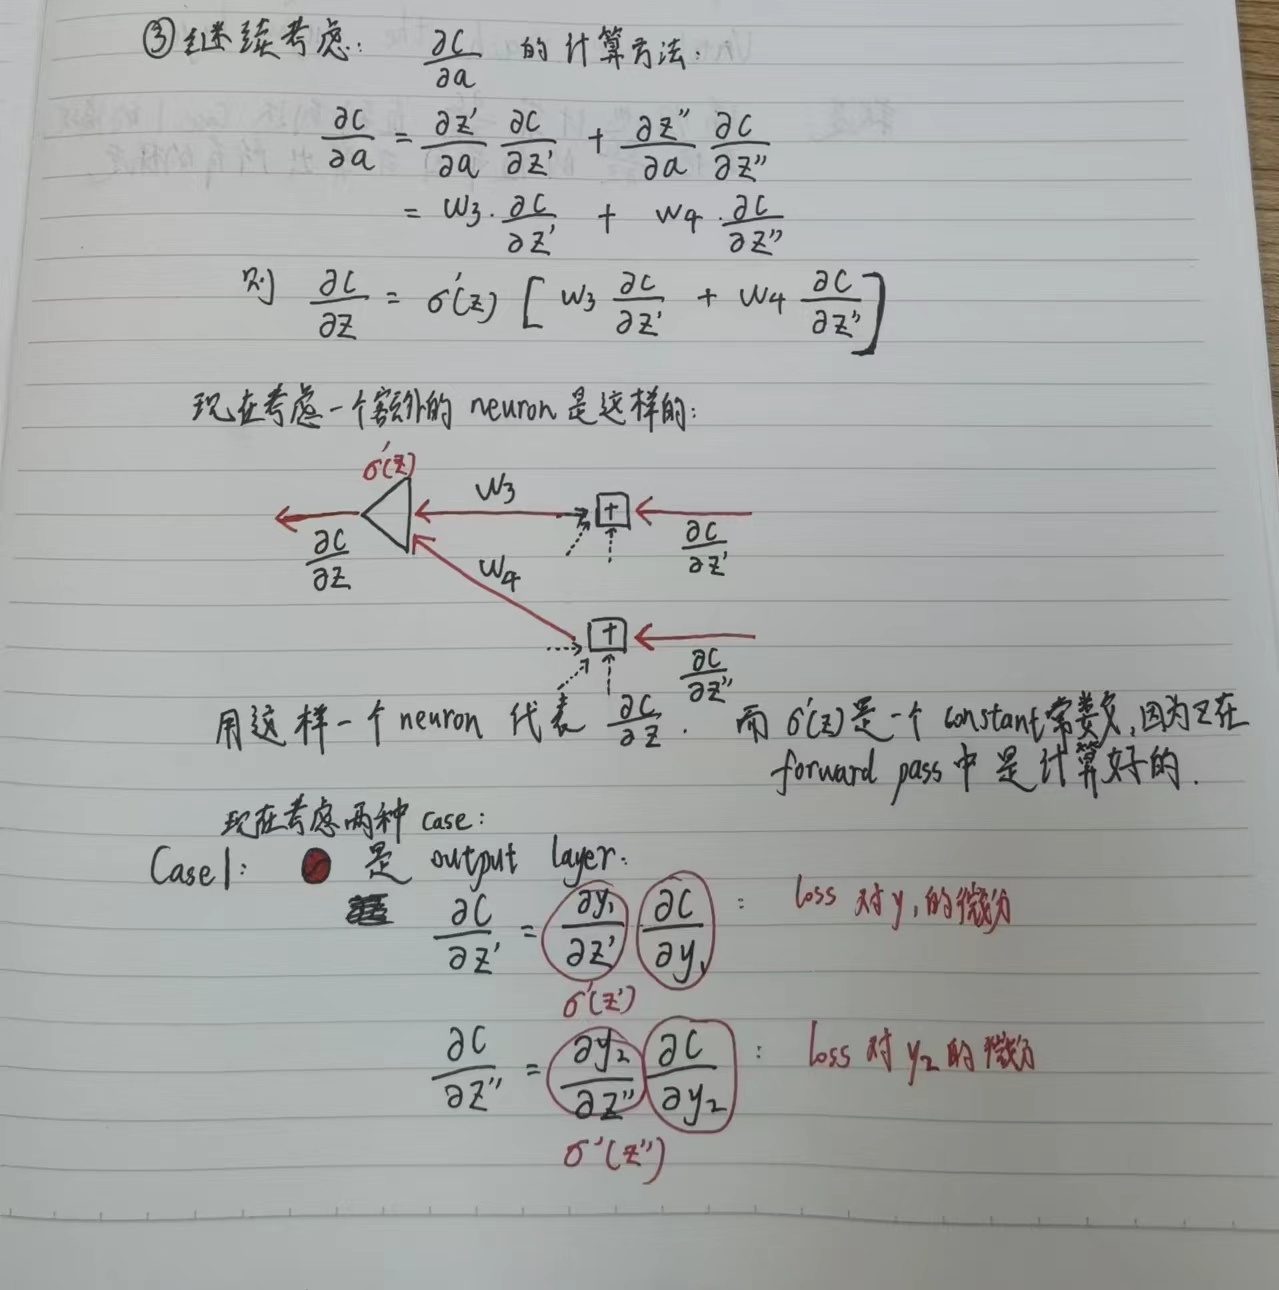 ③继续考虑: ∂C/∂a 的计算方法:
∂C/∂a = ∂z'/∂a ∂C/∂z' + ∂z''/∂a ∂C/∂z''
= w3·∂C/∂z' + w4·∂C/∂z''
则 ∂C/∂z = σ'(z) [ w3 ∂C/∂z' + w4 ∂C/∂z'' ]
现在考虑一个额外的 neuron 是这样的:
σ'(z)
w3
+
∂C/∂z
∂C/∂z'
w4
+
∂C/∂z''
用这样一个 neuron 代表 ∂C/∂z. 而 σ'(z) 是一个 constant 常数,因为 z 在
forward pass 中是计算好的.
现在考虑两种 case:
Case1: 是 output layer.
∂C/∂z' = ∂y1/∂z' ∂C/∂y1 : loss 对 y1 的微分
σ'(z')
∂C/∂z'' = ∂y2/∂z'' ∂C/∂y2 : loss 对 y2 的微分
σ'(z'')